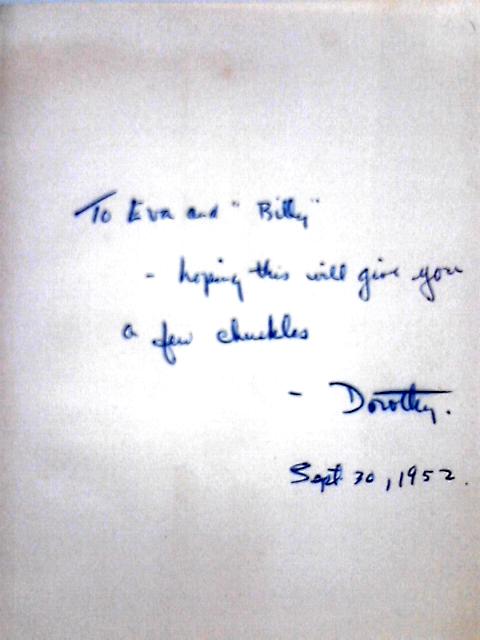 To Eva and "Billy"
- hoping this will give you
a few chuckles
- Dorothy.
Sept 30, 1952.